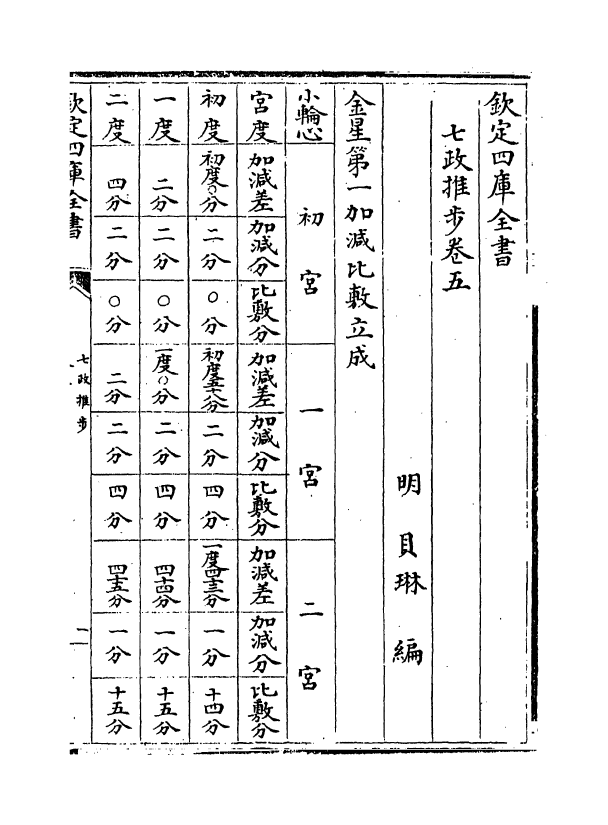 欽定四庫全書
七政推步卷五
明貝琳編
金星第一加減比敷立成
小輪心 初宮 一宮 二宮
宮度 加減差 加減分 比敷分 加減差 加減分 比敷分 加減差 加減分 比敷分
初度 初度〇分 二分 〇分 初度五十八分 二分 四分 一度四十三分 一分 十四分
一度 二分 二分 〇分 一度〇分 二分 四分 四十四分 一分 十五分
二度 四分 二分 〇分 二分 二分 四分 四十五分 一分 十五分
欽定四庫全書
七政推步